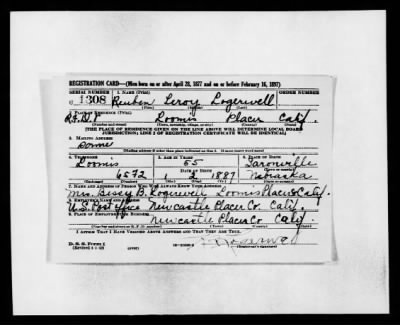 REGISTRATION CARD—(Men born on or after April 28, 1877 and on or before February 16, 1897)
SERIAL NUMBER 1. NAME (Print) ORDER NUMBER
U 1308 Reuben Leroy Logerwell
2. PLACE OF RESIDENCE (Print)
R.F.D. 1 Loomis Placer Calif.
(Number and street) (Town, township, village, or city) (County) (State)
[THE PLACE OF RESIDENCE GIVEN ON THE LINE ABOVE WILL DETERMINE LOCAL BOARD
JURISDICTION; LINE 2 OF REGISTRATION CERTIFICATE WILL BE IDENTICAL]
3. MAILING ADDRESS
Same
[Mailing address if other than place indicated on line 2. If same insert word same]
4. TELEPHONE 5. AGE IN YEARS 6. PLACE OF BIRTH
Loomis 55 Saronville
DATE OF BIRTH
6572 1 2 1887 Nebraska
7. NAME AND ADDRESS OF PERSON WHO WILL ALWAYS KNOW YOUR ADDRESS
Mrs. Bessy B. Logerwell Loomis Placer Co Calif.
8. EMPLOYER'S NAME AND ADDRESS
U.S. Post Office Newcastle Placer Co. Calif.
9. PLACE OF EMPLOYMENT OR BUSINESS
Newcastle Placer Co Calif.
(Number and street or R. F. D. number) (Town) (County) (State)
I AFFIRM THAT I HAVE VERIFIED ABOVE ANSWERS AND THAT THEY ARE TRUE.
D. S. S. Form 1
(Revised 4-1-42)